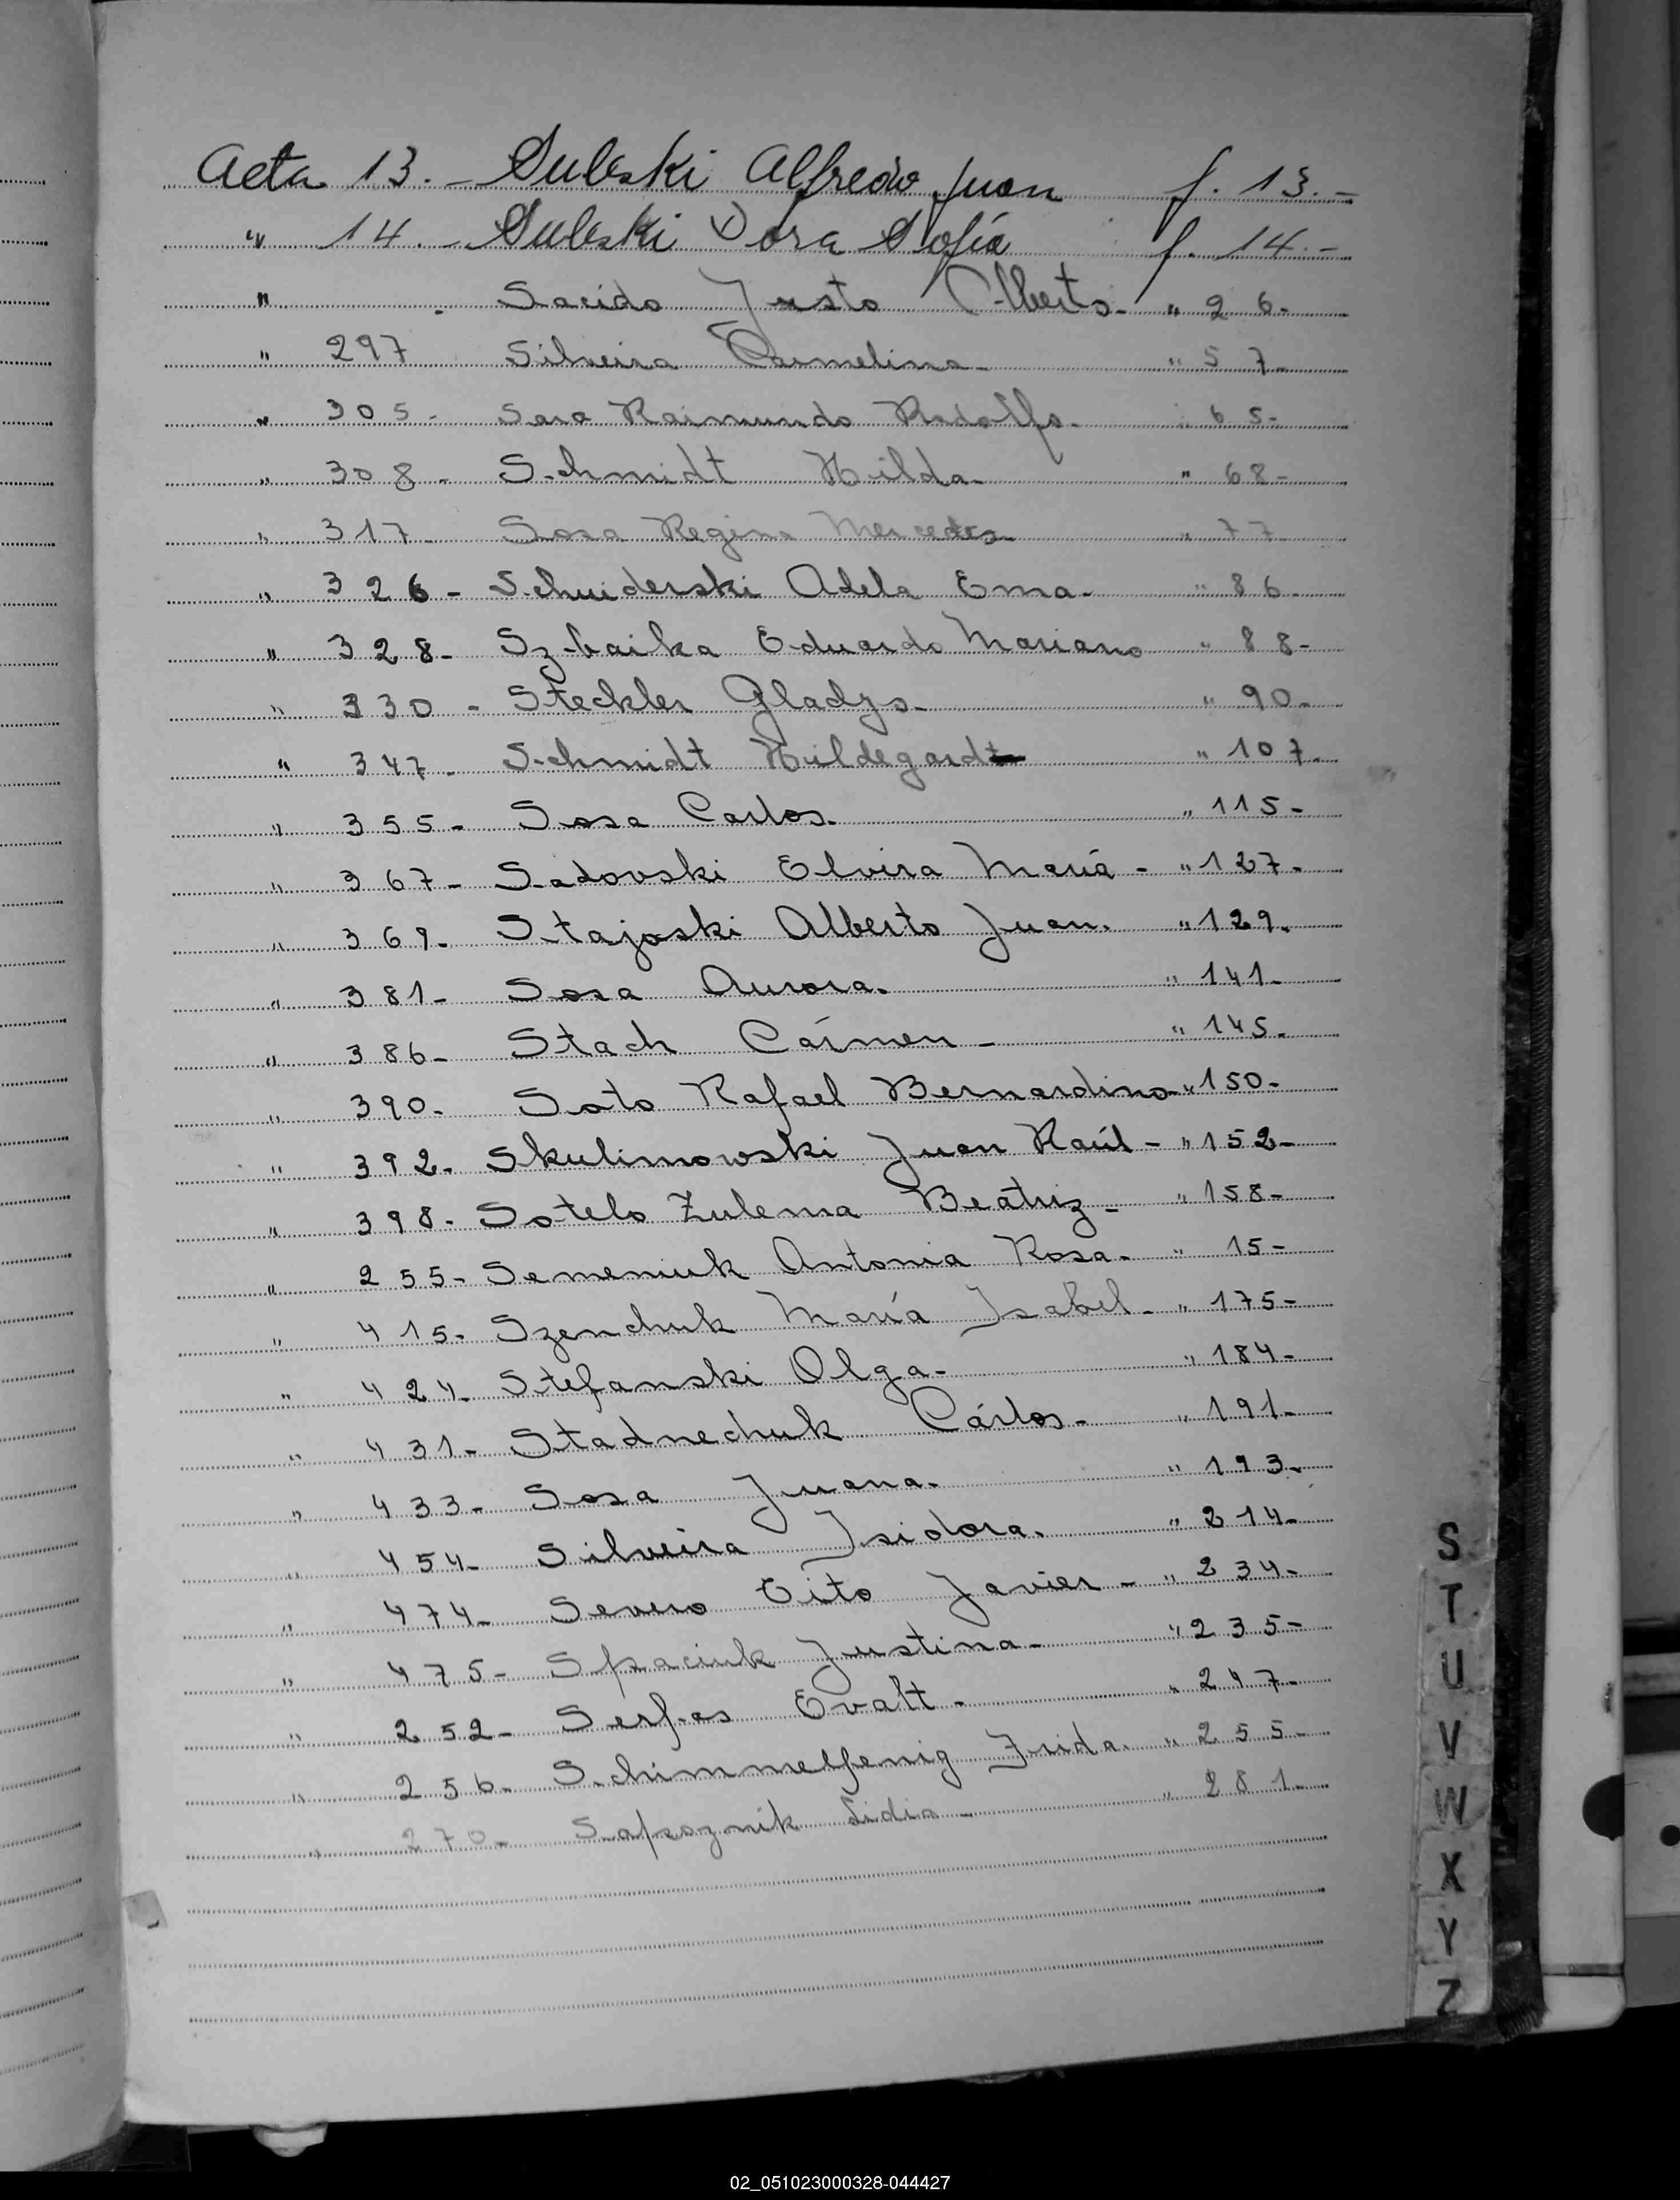 Acta 13.- Suleski Alfredo Juan f. 13.-
" 14.- Suleski Dora Sofía f. 14.-
" . Sacido Justo Alberto- " 26-
" 297 Silveira Carmelina- " 57-
" 305- Sara Raimundo Rodolfo- " 65-
" 308- Schmidt Hilda- " 68-
" 317- Sosa Regina Mercedes- " 77-
" 326- Schuiderski Adela Ema- " 86-
" 328- Szbaika Eduardo Mariano " 88-
" 330- Steckler Gladys- " 90-
" 347- Schmidt Hildegardt " 107-
" 355- Sosa Carlos- " 115-
" 367- Sadovski Elvira María- " 127-
" 369- Stajoski Alberto Juan. " 129.
" 381- Sosa Aurora. " 141-
" 386- Stach Cármen- " 145-
" 390- Soto Rafael Bernardino- " 150-
" 392- Skulimowski Juan Raúl- " 152-
" 398- Sotelo Zulema Beatriz- " 158-
" 255- Semeniuk Antonia Rosa- " 15-
" 415- Szenchuk María Isabel- " 175-
" 424- Stefanski Olga- " 184-
" 431- Stadnechuk Cárlos- " 191-
" 433- Sosa Juana- " 193-
" 454- Silveira Isidora. " 214-
" 474- Severo Tito Javier- " 234-
" 475- Spaciuk Justina- " 235-
" 252- Serfas Evalt- " 247-
" 256- Schimmelfenig Frida. " 255-
" 270- Sapsoznik Lidia- " 281-
S
T
U
V
W
X
Y
Z
02_051023000328-044427